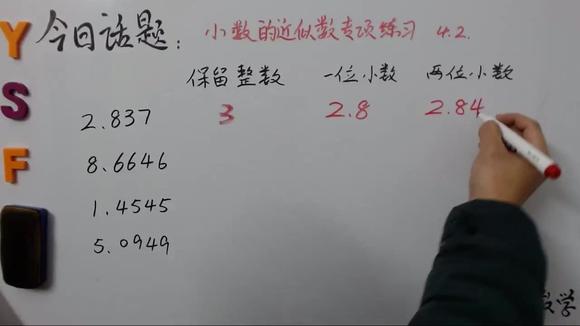 YSF
今日话题：小数的近似数专项练习 4.2.
保留整数 一位小数 两位小数
2.837 3 2.8 2.84
8.6646
1.4545
5.0949
学